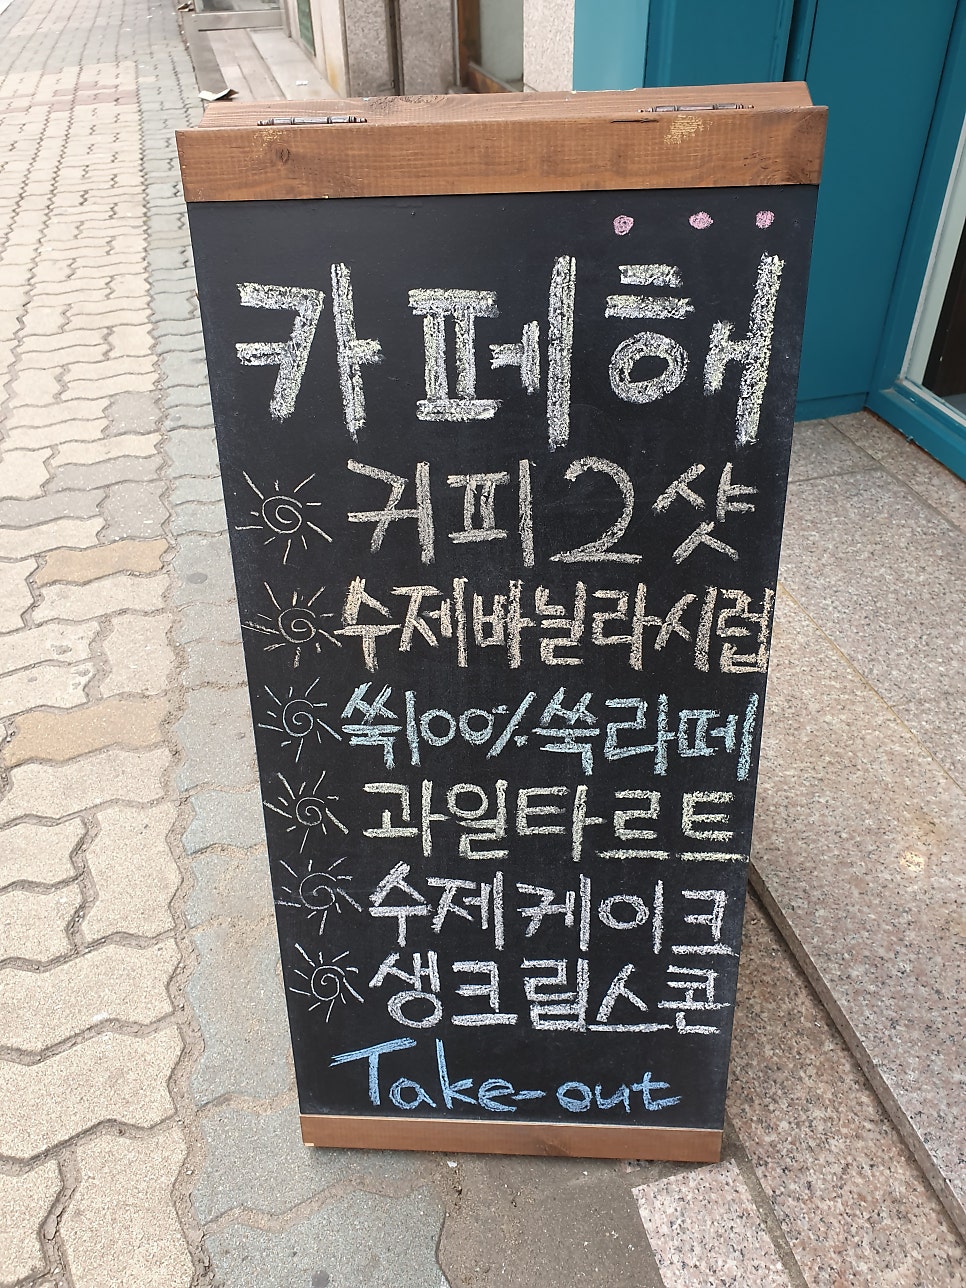 카페해
커피2샷
수제바닐라시럽
쑥100% 쑥라떼
과일타르트
수제케이크
생크림스콘
Take-out